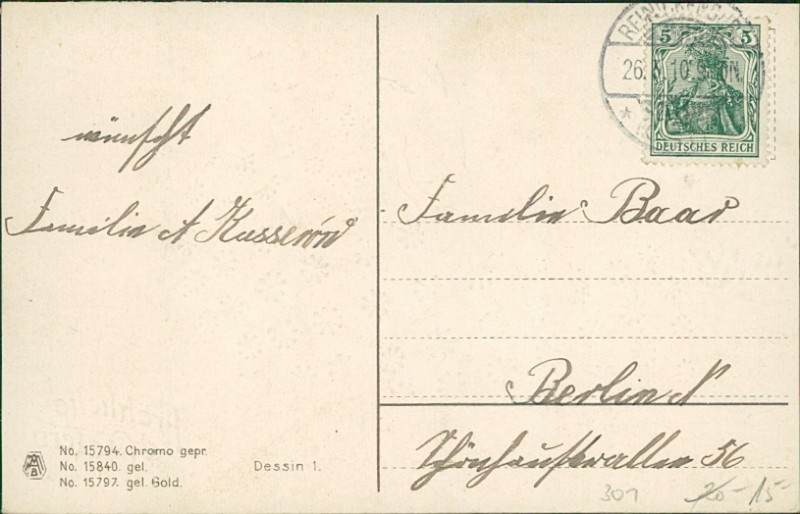 wünscht
Familie A Kusserow
No. 15794. Chromo gepr.
No. 15840. gel.
No. 15797. gel. Gold.
Dessin 1.
5 5
DEUTSCHES REICH
26. 10
Familie Baar
Berlin N
Schönhauserallee 56
301
20- 15-